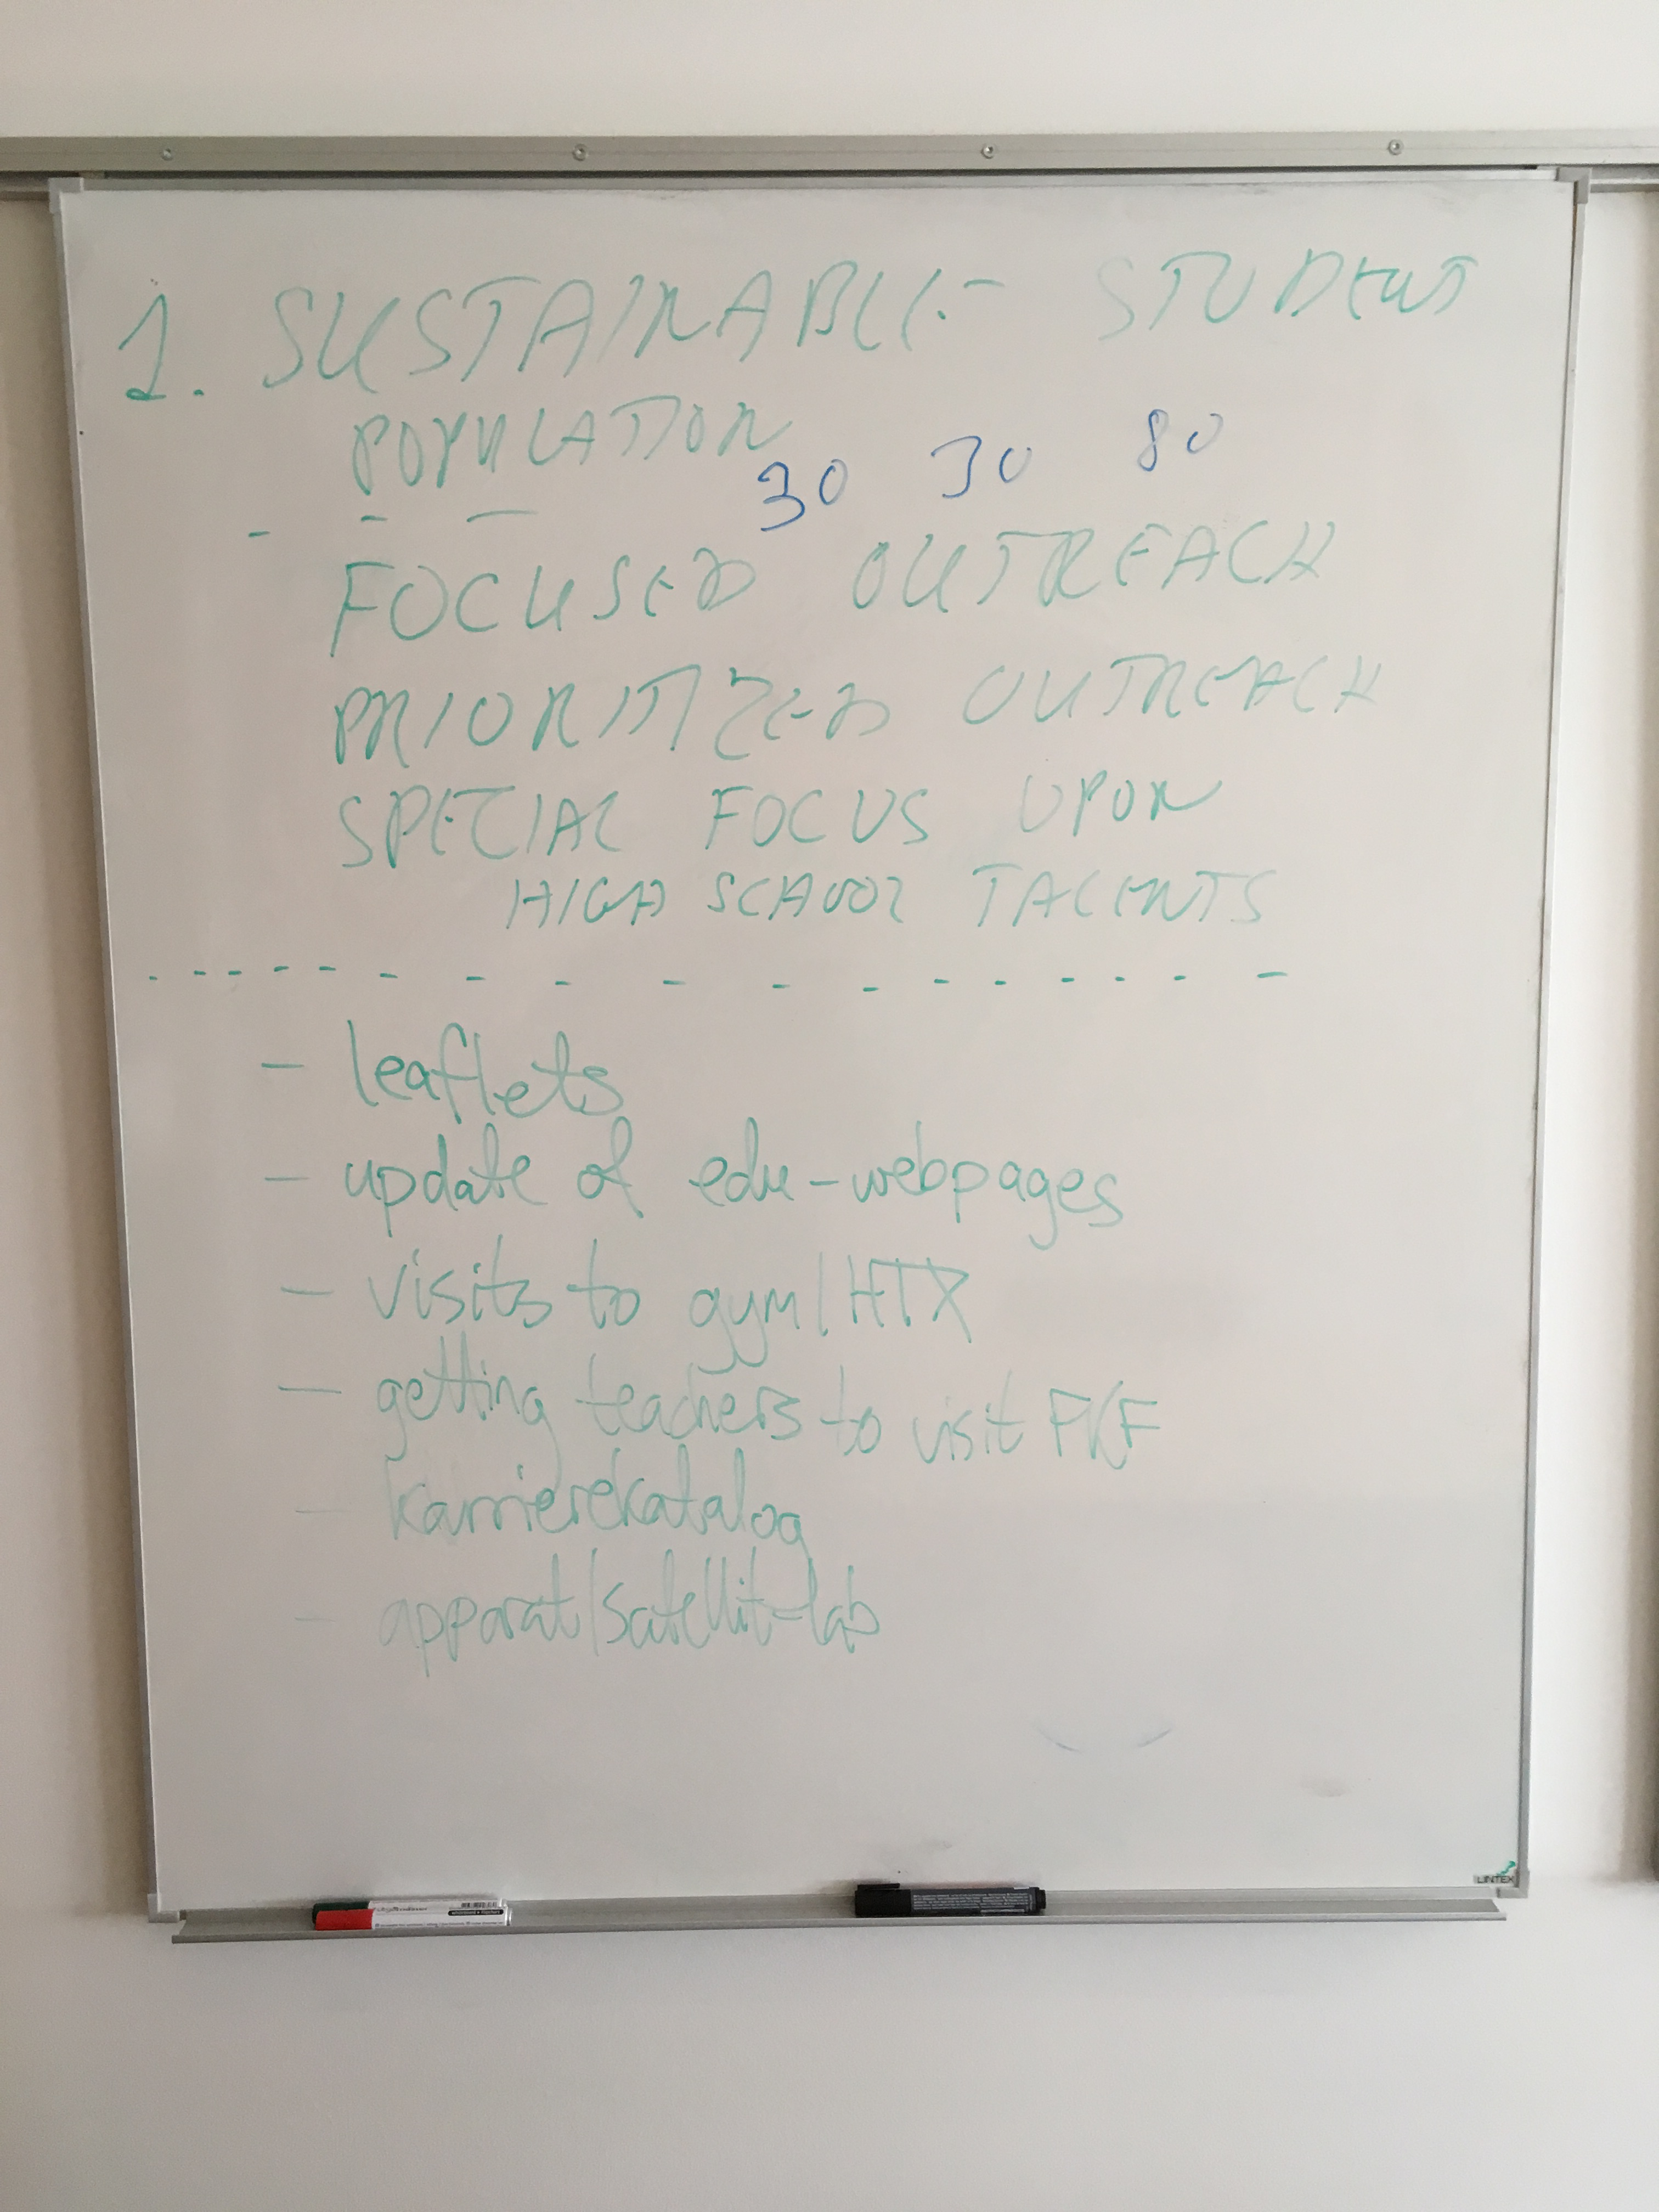 1. SUSTAINABLE STUDENT
POPULATION
30 30 80
FOCUSED OUTREACH
PRIORITIZED OUTREACH
SPECIAL FOCUS UPON
HIGH SCHOOL TALENTS
- leaflets
- update of edu-webpages
- visits to gym/HTX
- getting teachers to visit FKF
- karrierekatalog
- apparat/satellit-lab
LINTEX